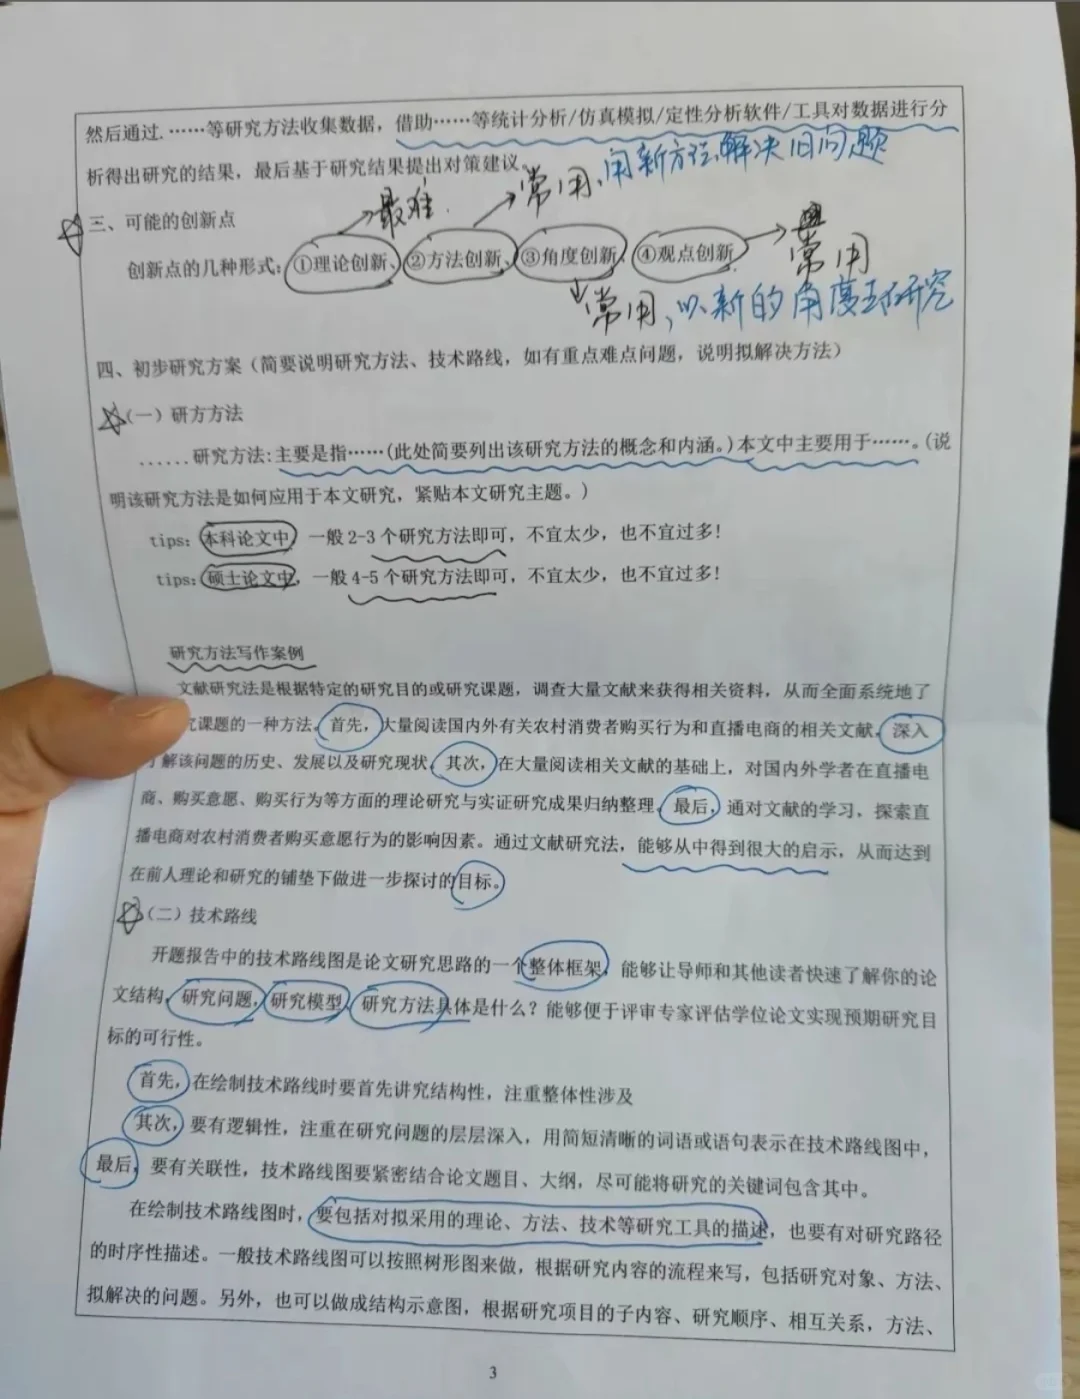 然后通过.……等研究方法收集数据，借助……等统计分析/仿真模拟/定性分析软件/工具对数据进行分
析得出研究的结果，最后基于研究结果提出对策建议。
用新方法解决旧问题
最难.
常用、
三、可能的创新点
常用
创新点的几种形式：①理论创新、②方法创新、③角度创新、④观点创新.
常用，以新的角度去研究
四、初步研究方案（简要说明研究方法、技术路线，如有重点难点问题，说明拟解决方法）
（一）研方方法
......研究方法:主要是指……(此处简要列出该研究方法的概念和内涵。)本文中主要用于……。(说
明该研究方法是如何应用于本文研究，紧贴本文研究主题。)
tips：本科论文中，一般 2-3 个研究方法即可，不宜太少，也不宜过多！
tips：硕士论文中，一般 4-5 个研究方法即可，不宜太少，也不宜过多！
研究方法写作案例
文献研究法是根据特定的研究目的或研究课题，调查大量文献来获得相关资料，从而全面系统地了
究课题的一种方法。首先，大量阅读国内外有关农村消费者购买行为和直播电商的相关文献，深入
了解该问题的历史、发展以及研究现状。其次，在大量阅读相关文献的基础上，对国内外学者在直播电
商、购买意愿、购买行为等方面的理论研究与实证研究成果归纳整理。最后，通对文献的学习，探索直
播电商对农村消费者购买意愿行为的影响因素。通过文献研究法，能够从中得到很大的启示，从而达到
在前人理论和研究的铺垫下做进一步探讨的目标。
（二）技术路线
开题报告中的技术路线图是论文研究思路的一个整体框架，能够让导师和其他读者快速了解你的论
文结构，研究问题，研究模型，研究方法具体是什么？能够便于评审专家评估学位论文实现预期研究目
标的可行性。
首先，在绘制技术路线时要首先讲究结构性，注重整体性涉及
其次，要有逻辑性，注重在研究问题的层层深入，用简短清晰的词语或语句表示在技术路线图中，
最后，要有关联性，技术路线图要紧密结合论文题目、大纲，尽可能将研究的关键词包含其中。
在绘制技术路线图时，要包括对拟采用的理论、方法、技术等研究工具的描述，也要有对研究路径
的时序性描述。一般技术路线图可以按照树形图来做，根据研究内容的流程来写，包括研究对象、方法、
拟解决的问题。另外，也可以做成结构示意图，根据研究项目的子内容、研究顺序、相互关系，方法、
3